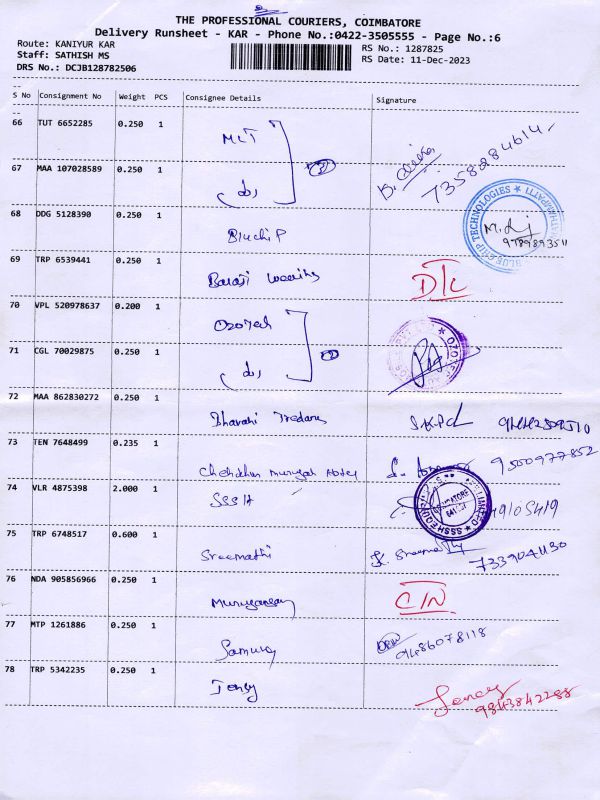 THE PROFESSIONAL COURIERS, COIMBATORE
Delivery Runsheet - KAR - Phone No.:0422-3505555 - Page No.:6
Route: KANIYUR KAR
RS No.: 1287825
Staff: SATHISH MS
RS Date: 11-Dec-2023
DRS No.: DCJB128782506
S No Consignment No Weight PCS Consignee Details Signature
66 TUT 6652285 0.250 1 MLT
7358284614
67 MAA 107028589 0.250 1 do,
68 DDG 5128390 0.250 1 Bluchip
69 TRP 6539441 0.250 1 Balaji DTC
70 VPL 520978637 0.200 1 OzoTech
71 CGL 70029875 0.250 1 do,
72 MAA 862830272 0.250 1 Bharani Traders
73 TEN 7648499 0.235 1 Murugan 9500977852
74 VLR 4875398 2.000 1 SSSH
75 TRP 6748517 0.600 1 Sreemathi
76 NDA 905856966 0.250 1 C/N
77 MTP 1261886 0.250 1 9486078118
78 TRP 5342235 0.250 1 Jency Jency
9843842288